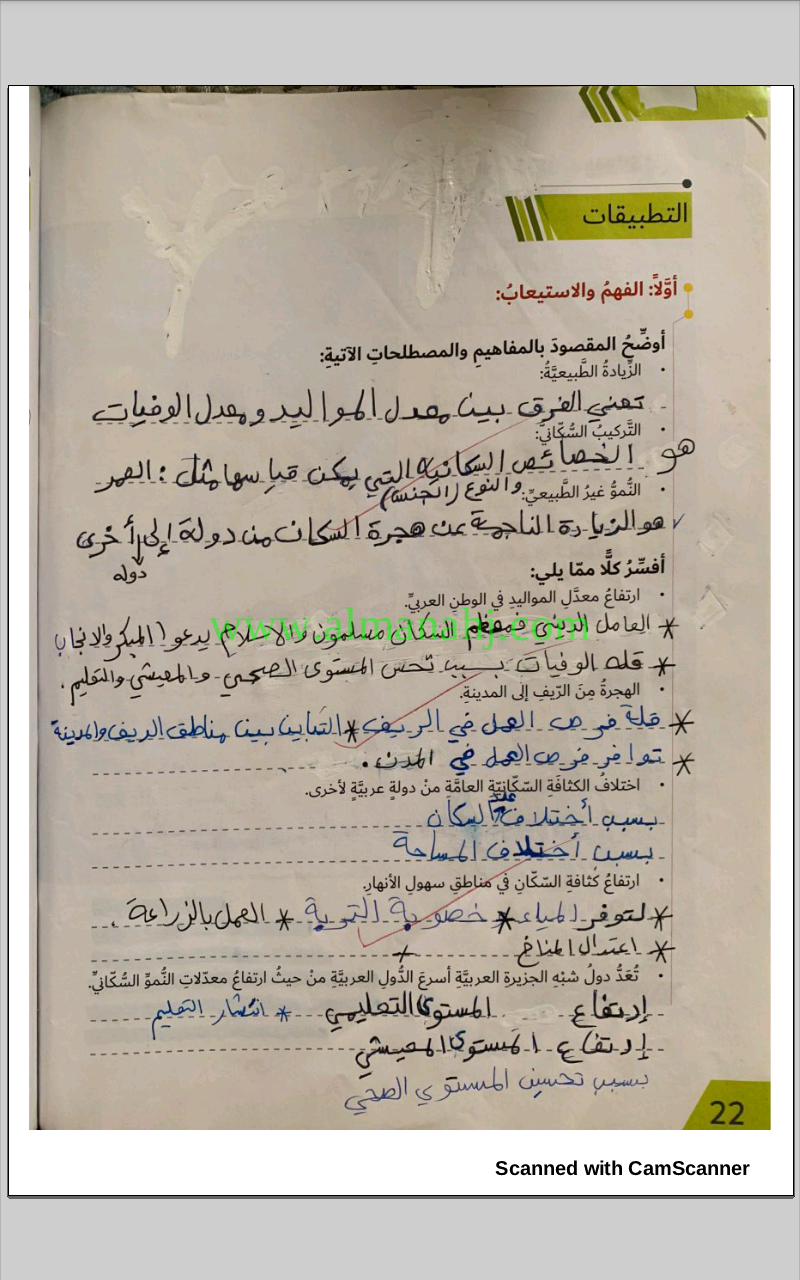 التطبيقات
أوَّلاً: الفهمُ والاستيعابُ:
أوضِّحُ المقصودَ بالمفاهيمِ والمصطلحاتِ الآتيةِ:
• الزِّيادةُ الطَّبيعيَّةُ:
تعني الفرق بين معدل المواليد ومعدل الوفيات
• التَّركيبُ السُّكّانيُّ:
هو الخصائص السكانية التي يمكن قياسها مثل : العمر
والنوع (الجنس)
• النُّموُّ غيرُ الطَّبيعيِّ:
هو الزيادة الناجمة عن هجرة السكان من دولة إلى أخرى
دوله
أفسِّرُ كلًّا ممّا يلي:
• ارتفاعُ معدَّلِ المواليدِ في الوطنِ العربيِّ.
* العامل الديني فمعظم السكان مسلمون والاسلام يدعو ( المبكر والانجاب
www.almanahj.com
* قله الوفيات بسبب تحسن المستوى الصحي والمعيشي والتعليم .
• الهجرةُ مِنَ الرّيفِ إلى المدينةِ.
* قلة فرص العمل في الريف * التباين بين مناطق الريف والمدينة
* توافر فرص العمل في المدن .
• اختلافُ الكثافَةِ السّكّانيّةِ العامَّةِ منْ دولةٍ عربيَّةٍ لأخرى.
بسبب أختلاف عدد السكان
بسبب أختلاف المساحة
• ارتفاعُ كَثافةِ السّكّانِ في مناطقِ سهولِ الأنهارِ.
* لتوفر المياه * خصوبة التربة * العمل بالزراعة .
* اعتدال المناخ
• تُعَدُّ دولُ شبْهِ الجزيرةِ العربيَّةِ أسرعَ الدُّولِ العربيَّةِ منْ حيثُ ارتفاعُ معدّلاتِ النُّموِّ السُّكّانيِّ.
إرتفاع المستوى التعليمي * انتشار التعليم
إرتفاع المستوى المعيشي
بسبب تحسين المستوي الصحي
22
Scanned with CamScanner